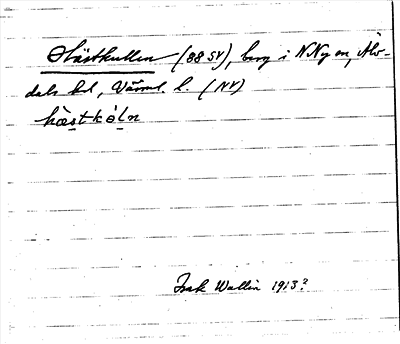 Hästkullen (88 SV), berg i N. Ny sn, Älv-
dals hd, Värml. l. (NV)
hæstkóln
Isak Wallin 1913?